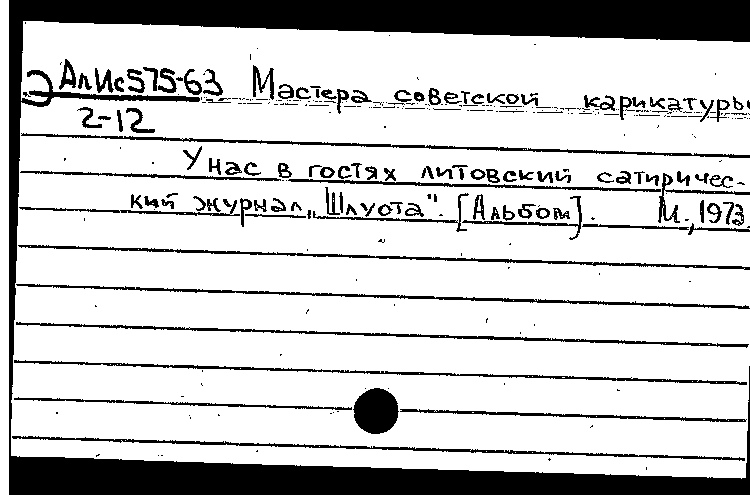 АлИс575-63 Мастера советской карикатуры
2-12
У нас в гостях литовский сатиричес-
кий журнал „Шлуота". [Альбом]. М., 1973.